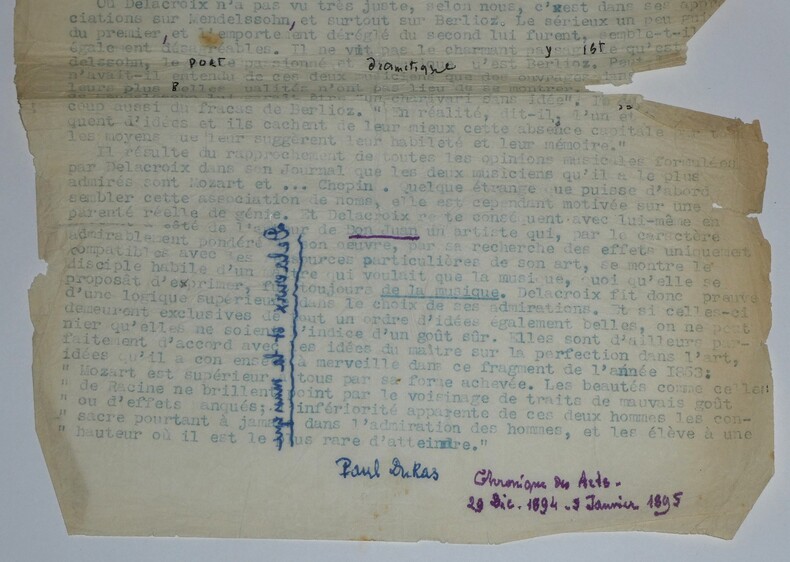 Où Delacroix n'a pas vu très juste, selon nous, c'est dans ses
ciations sur Mendelssohn, et surtout sur Berlioz. Le sérieux un peu
du premier, et l'emportement déréglé du second lui furent, semble-t-il
également désagréables. Il ne vit pas le charmant qu'est
delssohn, le poète passionné et dramatique qu'est Berlioz.
n'avait-il entendu de ces deux musiciens que des ouvrages
leurs plus Belles qualités n'ont pas lieu de se montrer.
"un charivari sans idée".
coup aussi du fracas de Berlioz. "En réalité, dit-il,
quent d'idées et ils cachent de leur mieux cette absence capitale par
les moyens que leur suggèrent leur habileté et leur mémoire."
Il résulte du rapprochement de toutes les opinions musicales formulées
par Delacroix dans son Journal que les deux musiciens qu'il a le plus
admirés sont Mozart et ... Chopin. Quelque étrange que puisse d'abord
sembler cette association de noms, elle est cependant motivée sur une
parenté réelle de génie. Et Delacroix reste conséquent avec lui-même en
côté de l' de Don Juan un artiste qui, par le caractère
admirablement pondéré son oeuvre, par sa recherche des effets uniquement
compatibles avec les ources particulières de son art, se montre le
disciple habile d'un tre qui voulait que la musique, quoi qu'elle se
proposât d'exprimer, toujours de la musique. Delacroix fit donc preuve
d'une logique supérieure dans le choix de ses admirations. Et si celles-ci
demeurent exclusives de tout un ordre d'idées également belles, on ne peut
nier qu'elles ne soient l'indice d'un goût sûr. Elles sont d'ailleurs par-
faitement d'accord avec les idées du maître sur la perfection dans l'art,
idées qu'il a con ensé à merveille dans ce fragment de l'année 1853:
" Mozart est supérieur à tous par sa forme achevée. Les beautés comme celles
" de Racine ne brillent point par le voisinage de traits de mauvais goût
" ou d'effets anqués; l'infériorité apparente de ces deux hommes les con-
" sacre pourtant à jamais dans l'admiration des hommes, et les élève à une
" hauteur où il est le plus rare d'atteindre."
Delacroix et la musique
Paul Dukas
Chronique des Arts.
29 Dic. 1894 - 5 Janvier 1895